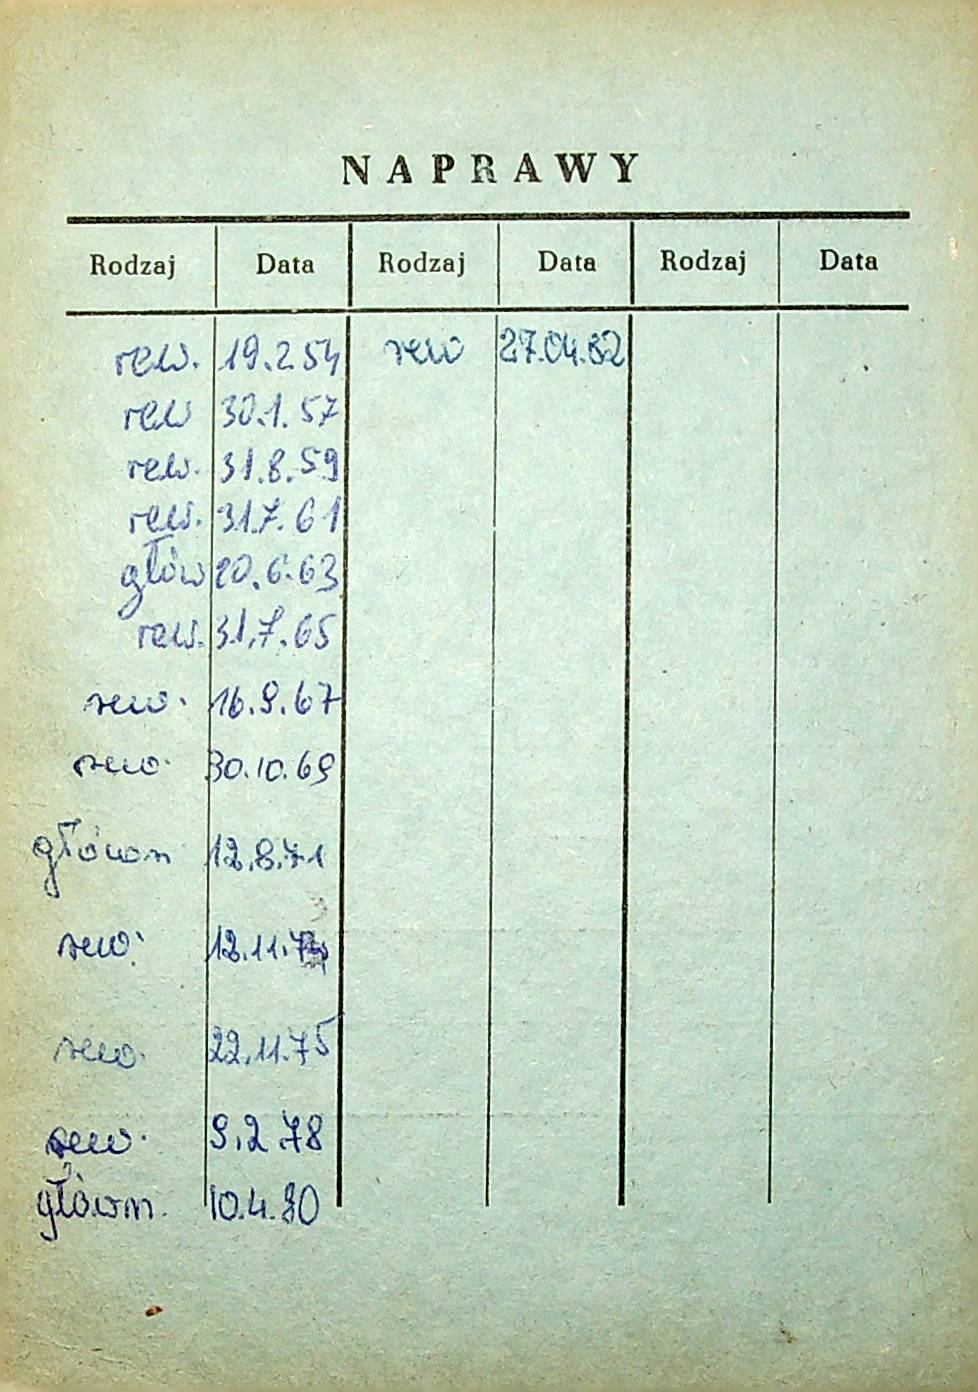 NAPRAWY
Rodzaj Data Rodzaj Data Rodzaj Data
rew. 19.2.54 rew 27.04.82
rew 30.1.57
rew. 31.8.59
rew. 31.7.61
głów 20.6.63
rew. 31.7.65
rew. 16.9.67
rew. 30.10.69
główn 12.8.71
rew. 12.11.73
rew. 22.11.75
rew. 9.2.78
główn. 10.4.80